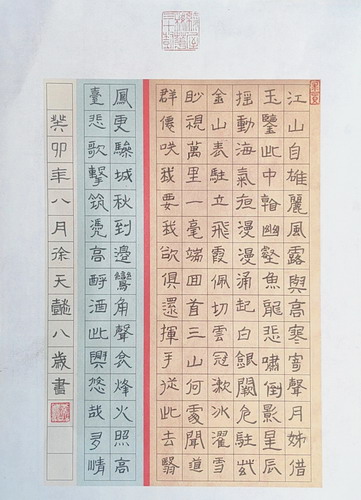 江山自雄麗風露與高寒寄聲月姊借
玉鑒此中看幽壑魚龍悲嘯倒影星辰
搖動海氣夜漫漫涌起白銀闕危駐紫
金山表駐立飛霞佩切雲冠漱冰濯雪
眇視萬里一毫端回首三山何處聞道
群僊咲我要我欲俱還揮手從此去翳
鳳更驂城秋到邊鸞角聲哀烽火照高
臺悲歌擊筑憑高酹酒此興悠哉多情
癸卯年八月徐天八歲書